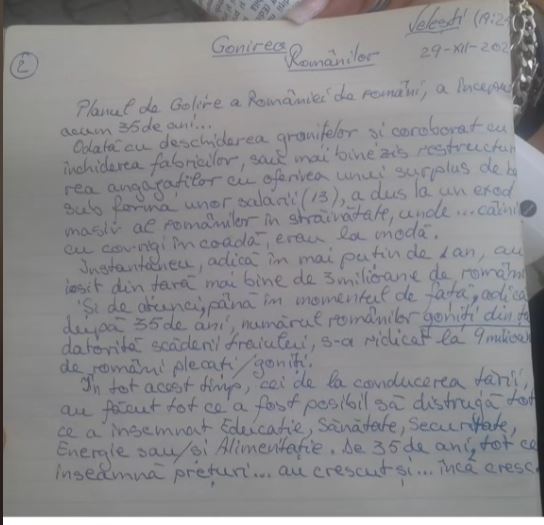 Velești (19:2
29-XII-202
2
Gonirea
Românilor
Planul de Golire a României de români, a început
acum 35 de ani...
Odată cu deschiderea granițelor și coroborat cu
închiderea fabricilor, sau mai bine zis restructur
rea angagaților cu oferirea unui surplus de b
sub forma unor salarii (13), a dus la un exod
masiv al românilor în străinătate, unde... câinii
cu covrigi în coadă, erau la modă.
Instantaneu, adică în mai puțin de 1 an, au
ieșit din țară mai bine de 3 milioane de români
Și de atunci, până în momentul de față, adică
după 35 de ani, numărul românilor goniți din ța
datorită scăderii traiului, s-a ridicat la 9 milioan
de români plecați/goniți.
În tot acest timp, cei de la conducerea țării,
au făcut tot ce a fost posibil să distrugă tot
ce a însemnat Educație, Sănătate, Securitate,
Energie sau/și Alimentație. De 35 de ani, tot ce
înseamnă prețuri... au crescut și... încă cresc